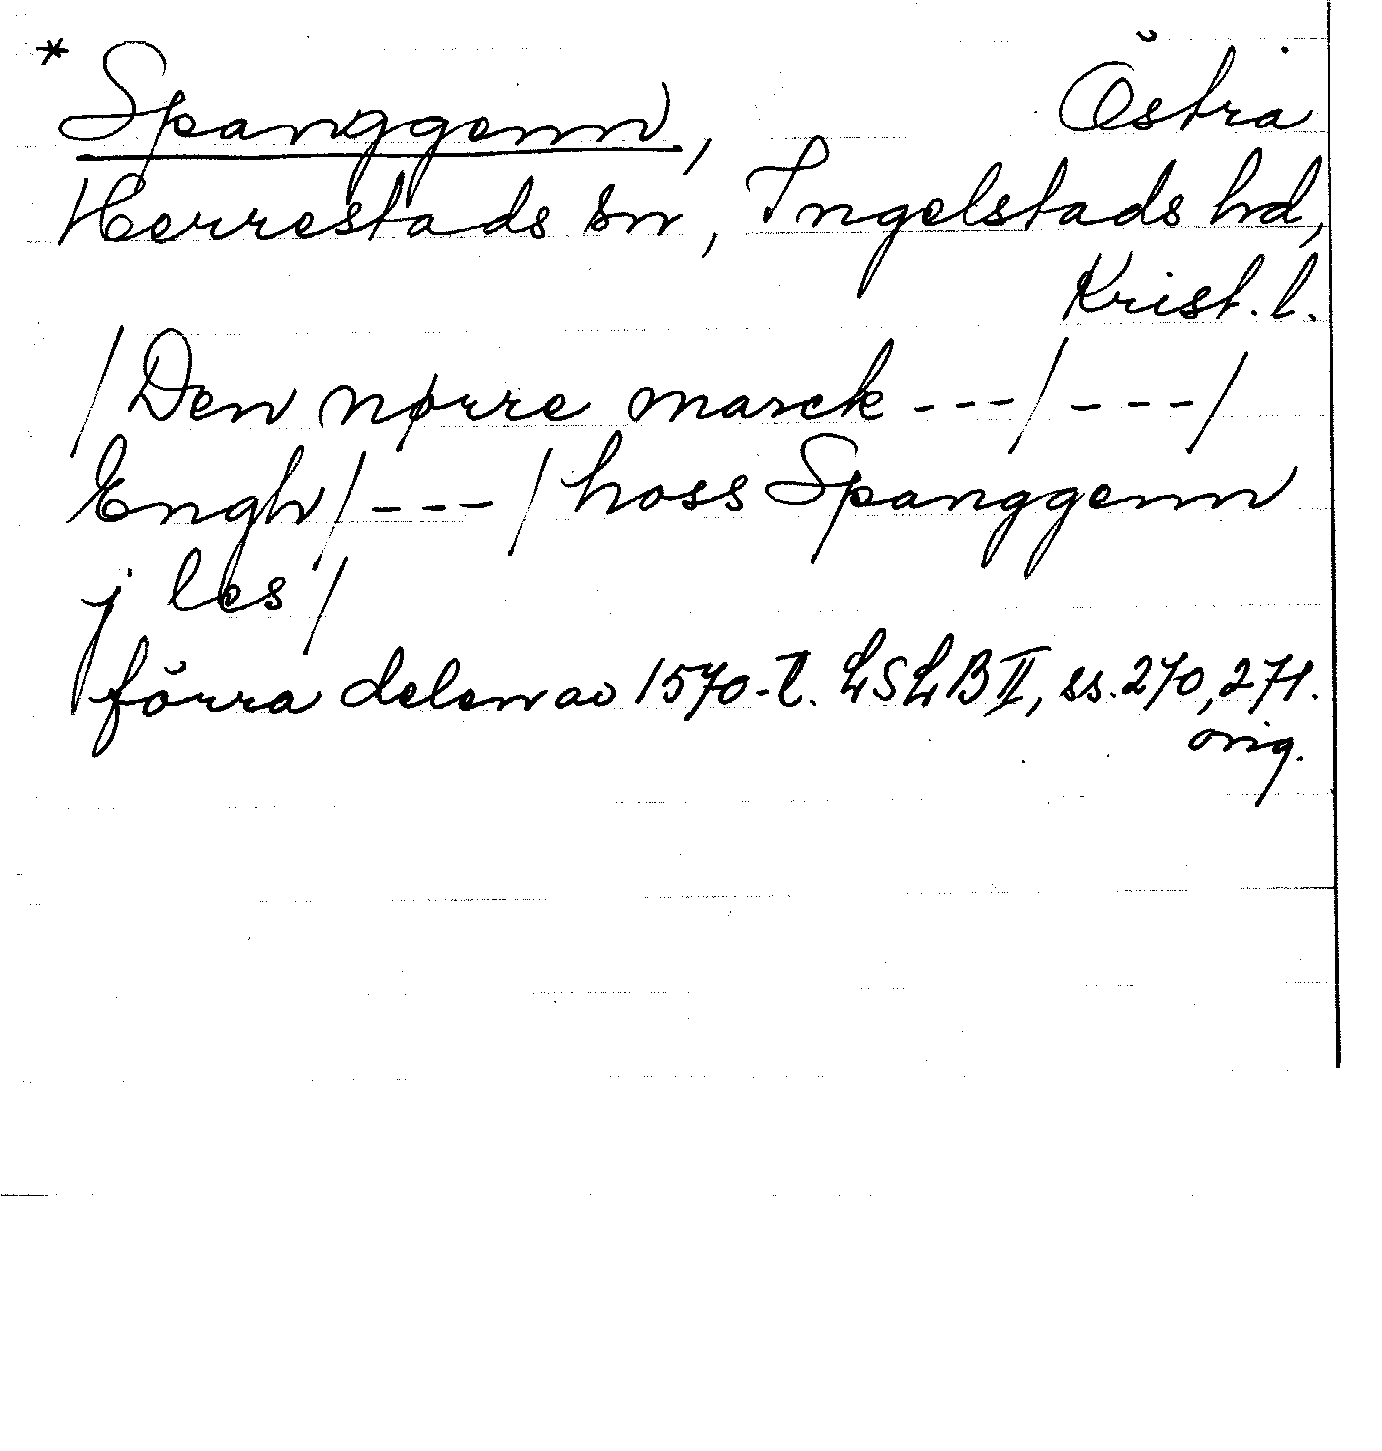 * Spanggenn, Östra
Herrestads sn, Ingelstads hd,
Krist. l.
/Den nørre marck ---/ ---/
Engh/---/hoss Spanggenn
j les/
förra delen av 1570-t. LSLB II, ss. 270, 271.
orig.